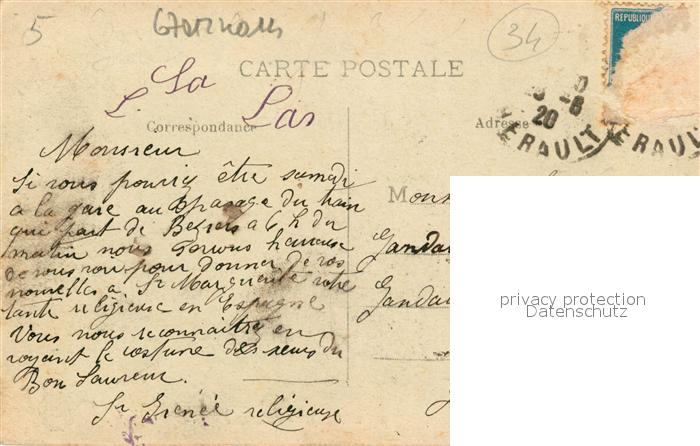 5
34
REPUBLIQUE
CARTE POSTALE
La
L. Las
Correspondance
Adresse
20
HERAULT
HERAULT
Monsieur
Si vous pouviez être samedi
a la gare au passage du train
qui part de Beziers a 6 h du
matin nous serions heureuse
de vous voir pour donner de vos
nouvelles a Sr Marguerite votre
tante religieuse en Espagne
Vous nous reconnaitrez en
voyant le costume des sœurs du
Bon Sauveur.
Sr Irénée religieuse
Mon
Gandar
Gandar
privacy protection
Datenschutz